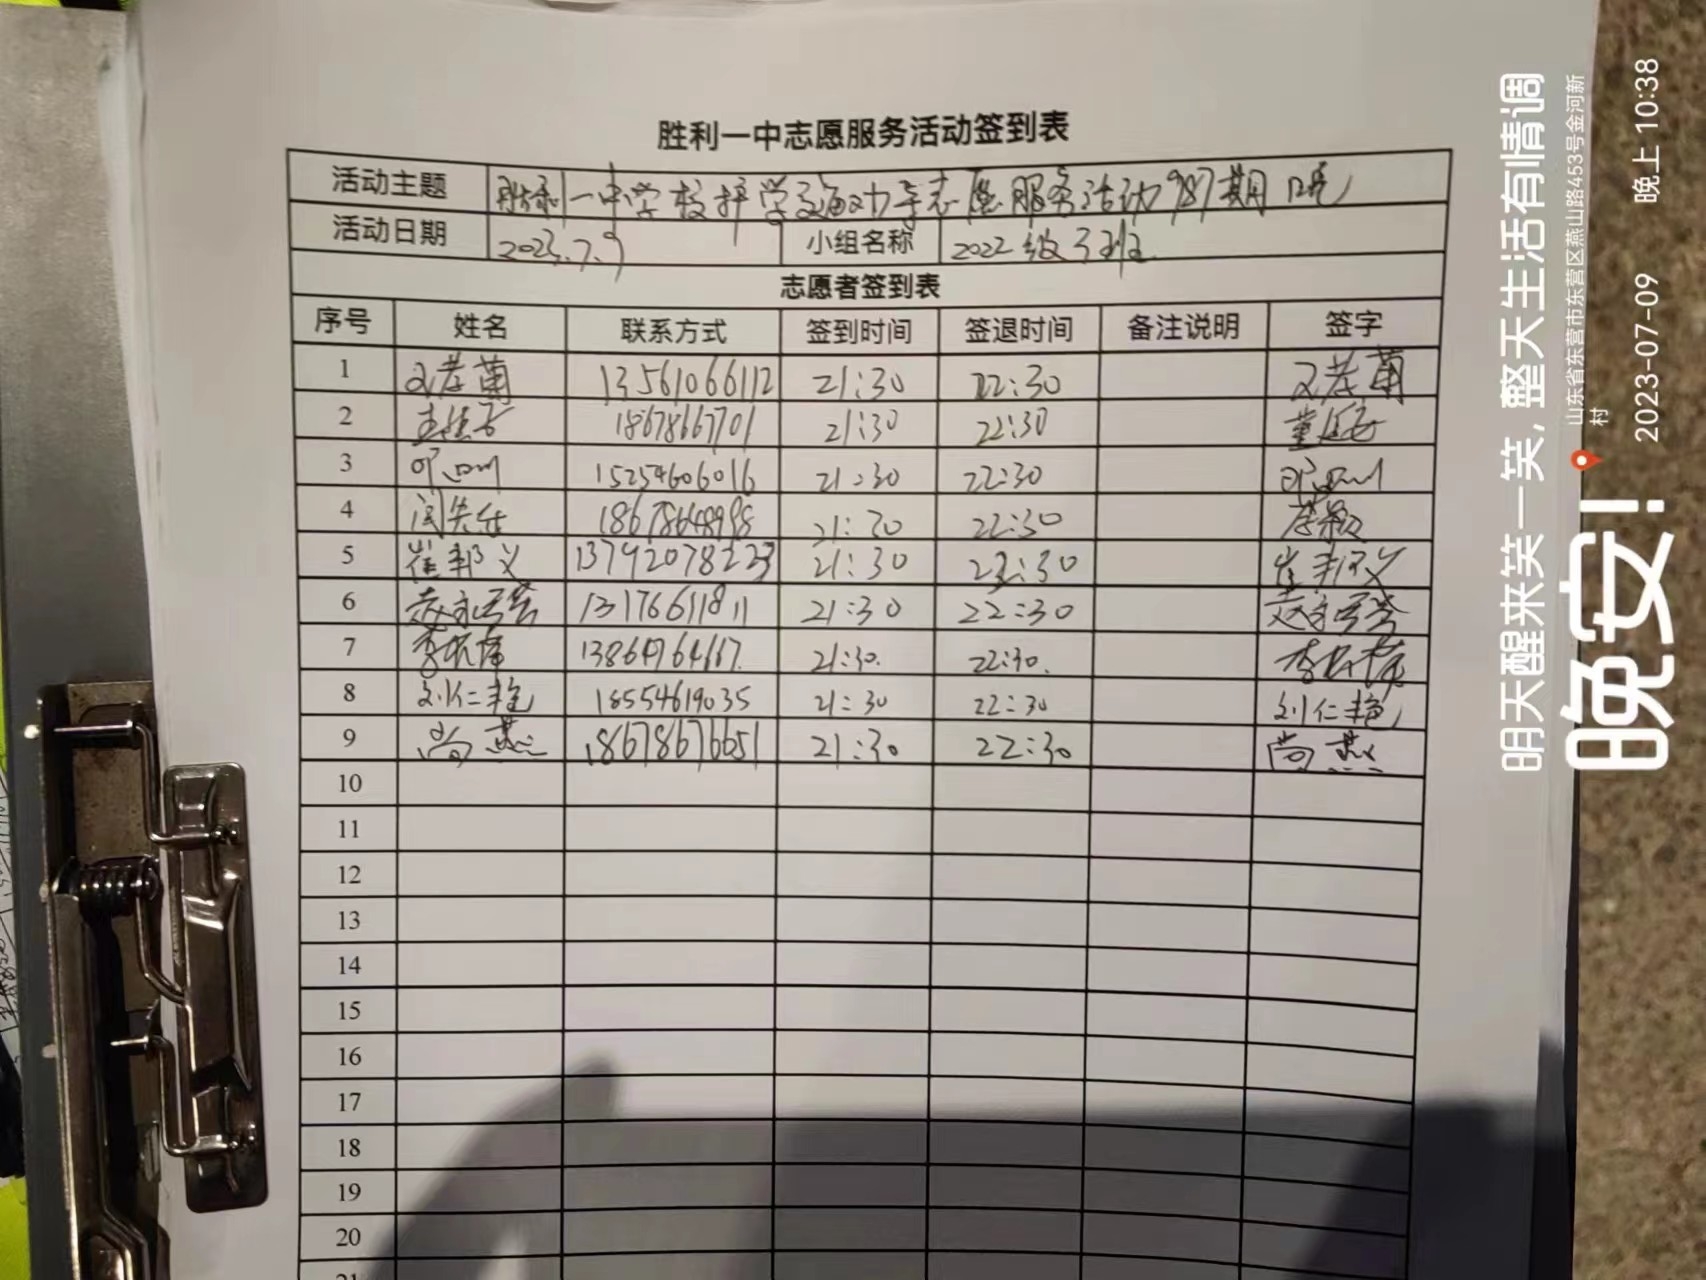 胜利一中志愿服务活动签到表
活动主题 胜利一中学校护学交通劝导志愿服务活动987期 晚
活动日期 2023.7.9 小组名称 2022级3班
志愿者签到表
序号 姓名 联系方式 签到时间 签退时间 备注说明 签字
1 13561066112 21:30 22:30
2 18678667701 21:30 22:30
3 15254606016 21:30 22:30
4 18678648998 21:30 22:30
5 崔邦义 13792078223 21:30 22:30 崔邦义
6 13176611811 21:30 22:30
7 21:30. 22:30.
8 刘仁艳 18554619035 21:30 22:30 刘仁艳
9 尚燕 18678676651 21:30 22:30 尚燕
10
11
12
13
14
15
16
17
18
19
20
21
明天醒来笑一笑，整天生活有情调
山东省东营市东营区燕山路453号金河新
村
2023-07-09 晚上10:38
晚安!